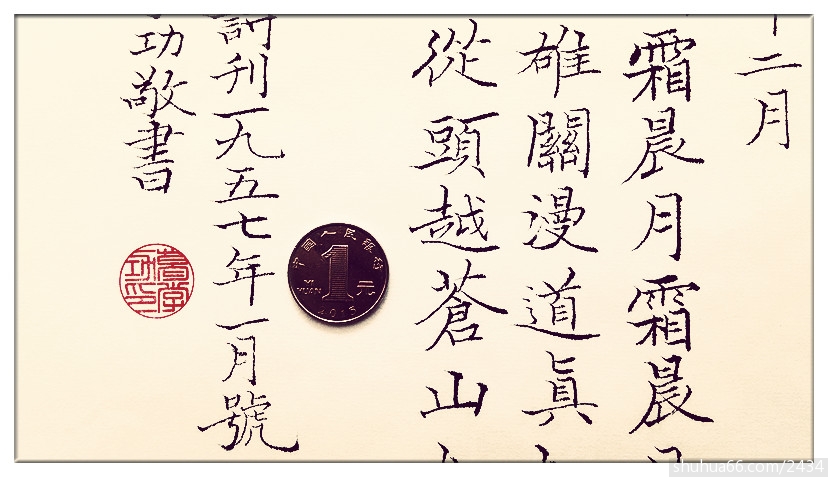 二月
霜晨月霜晨
雄關漫道眞
從頭越蒼山
刊一九五七年一月號
功敬書
中国人民银行
1元
YI YUAN
shuhua66.com/2434